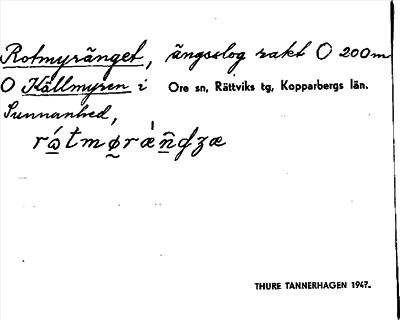 Rotmyränget, ängsslog rakt O 200m
O Källmyren i Ore sn, Rättviks tg, Kopparbergs län.
Sunnanhed,
THURE TANNERHAGEN 1947.